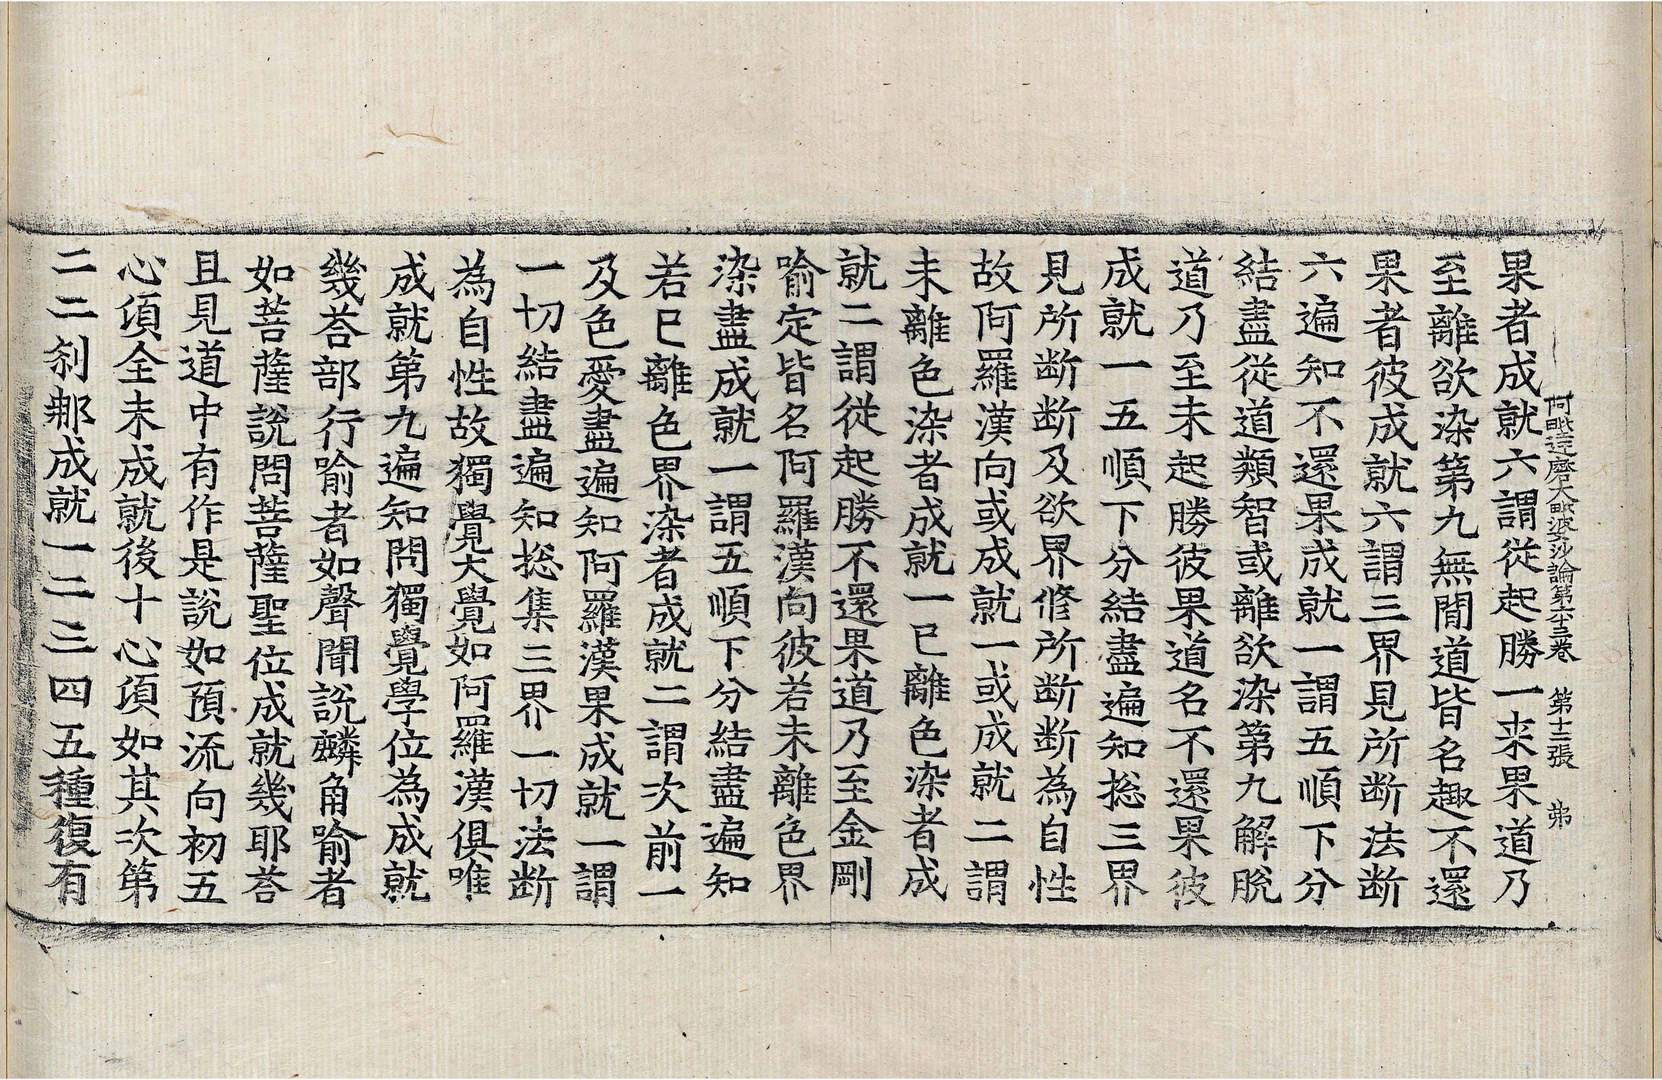 阿毗達磨大毗婆沙論第六十三卷 第十二張 弟
果者成就六謂從起勝一来果道乃
至離欲染第九無間道皆名趣不還
果者彼成就六謂三界見所断法断
六遍知不還果成就一謂五順下分
結盡從道類智或離欲染第九解脫
道乃至未起勝彼果道名不還果彼
成就一五順下分結盡遍知捴三界
見所断断及欲界修所断断為自性
故阿羅漢向或成就一或成就二謂
未離色染者成就一已離色染者成
就二謂從起勝不還果道乃至金剛
喻定皆名阿羅漢向彼若未離色界
染盡成就一謂五順下分結盡遍知
若已離色界染者成就二謂次前一
及色愛盡遍知阿羅漢果成就一謂
一切結盡遍知捴集三界一切法断
為自性故獨覺大覺如阿羅漢俱唯
成就第九遍知問獨覺學位為成就
幾荅部行喻者如聲聞說麟角喻者
如菩薩說問菩薩聖位成就幾耶荅
且見道中有作是說如預流向初五
心頃全未成就後十心頃如其次第
二二刹那成就一二三四五種復有